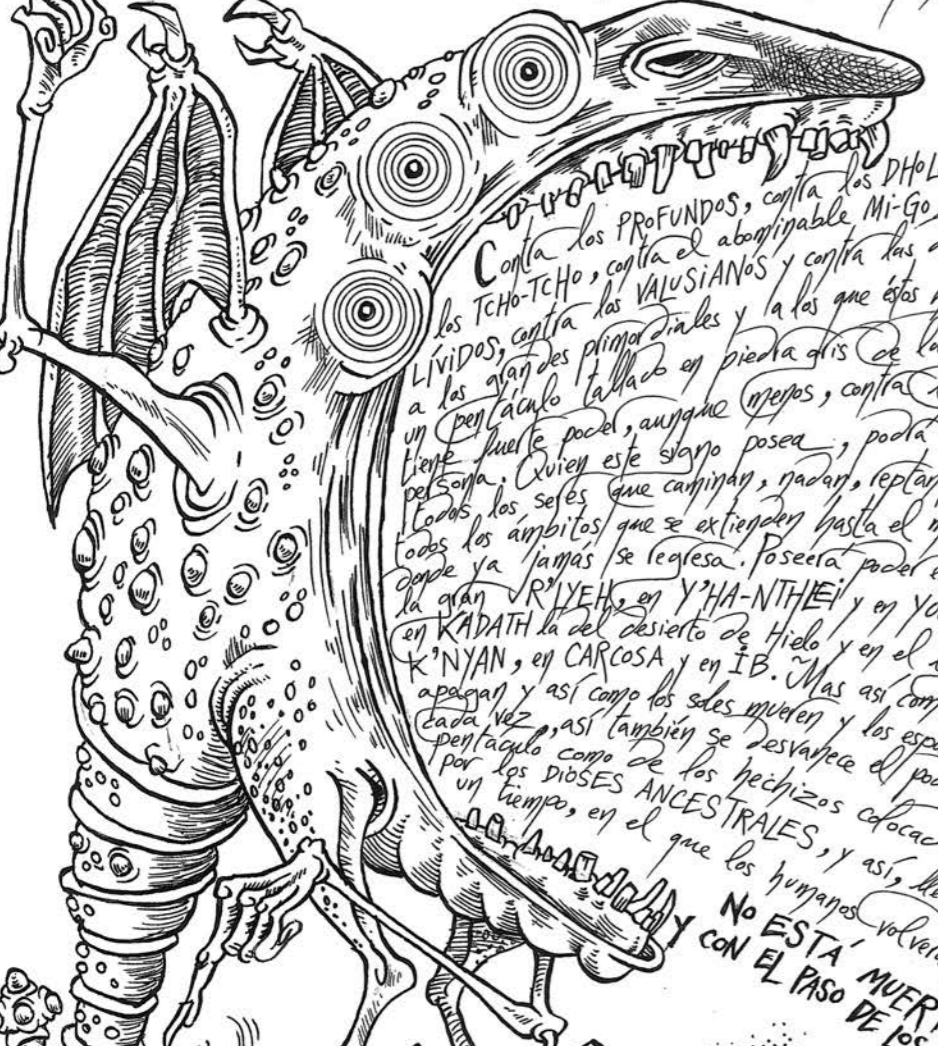 Contra los PROFUNDOS, contra los DHOL
los TCHO-TCHO, contra el abominable Mi-Go,
LÍVIDOS, contra los VALUSIANOS y contra las
a los grandes primordiales y a los que éstos
un pentáculo tallado en piedra gris de la
tiene fuerte poder, aunque menos, contra
persona. Quien este signo posea, podrá
todos los seres que caminan, nadan, reptan
todos los ámbitos que se extienden hasta el
donde ya jamás se regresa. Poseerá poder
la gran R'LYEH, en Y'HA-NTHLEi y en Yo
en KADATH la del desierto de Hielo y en el
K'NYAN, en CARCOSA y en IB. Mas así com
apagan y así como los soles mueren y los espa
cada vez, así también se desvanece el pod
pentáculo como de los hechizos colocad
por los DIOSES ANCESTRALES, y así,
un tiempo, en el que los humanos volver
NO ESTÁ MUER
Y CON EL PASO DE LOS